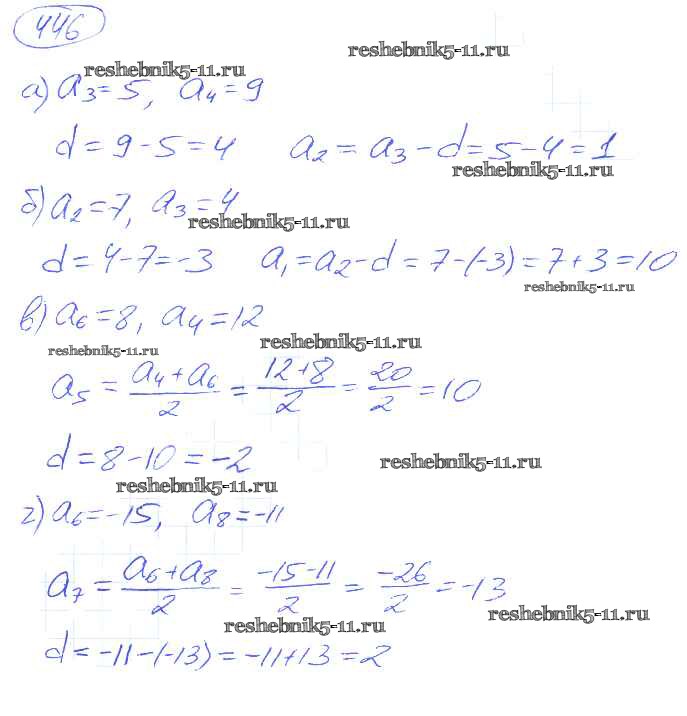 446
reshebnik5-11.ru
reshebnik5-11.ru
а) a₃ = 5, a₄ = 9
d = 9 - 5 = 4 a₂ = a₃ - d = 5 - 4 = 1
reshebnik5-11.ru
б) a₂ = 7, a₃ = 4
reshebnik5-11.ru
d = 4 - 7 = -3 a₁ = a₂ - d = 7 - (-3) = 7 + 3 = 10
reshebnik5-11.ru
в) a₆ = 8, a₄ = 12
reshebnik5-11.ru
reshebnik5-11.ru
a₅ = (a₄ + a₆)/2 = (12 + 8)/2 = 20/2 = 10
d = 8 - 10 = -2
reshebnik5-11.ru
reshebnik5-11.ru
г) a₆ = -15, a₈ = -11
a₇ = (a₆ + a₈)/2 = (-15 - 11)/2 = -26/2 = -13
reshebnik5-11.ru
reshebnik5-11.ru
d = -11 - (-13) = -11 + 13 = 2